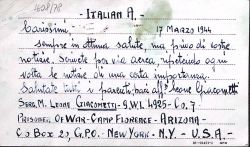 1608/78
- ITALIAN A. -
Carissimi 17 MARZO 1944
sempre in ottima salute ma privo di vostre
notizie. Scrivete per via aerea, ripetendo ogni
volta le notizie di una certa importanza.
Salutate tutti i parenti, baci aff. Leone Giacometti
SERG. M. LEONE GIACOMETTI - 9.W.I. 4925 - Co. 7
PRISONER OF WAR - CAMP FLORENCE - ARIZONA -
C/o BOX 20, G.P.O. - NEW YORK - N.Y. - U.S.A. -